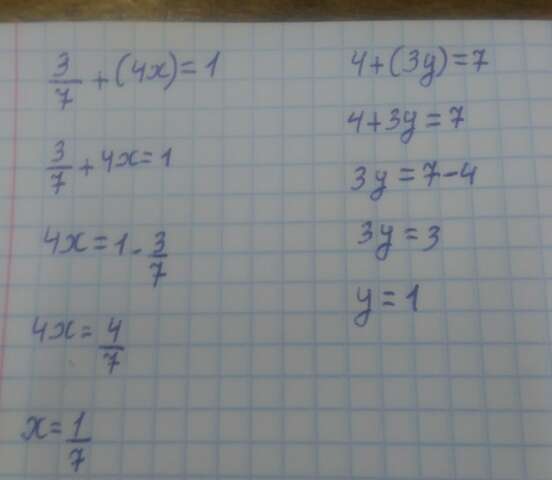 3/7 + (4x) = 1
3/7 + 4x = 1
4x = 1 - 3/7
4x = 4/7
x = 1/7
4 + (3y) = 7
4 + 3y = 7
3y = 7 - 4
3y = 3
y = 1